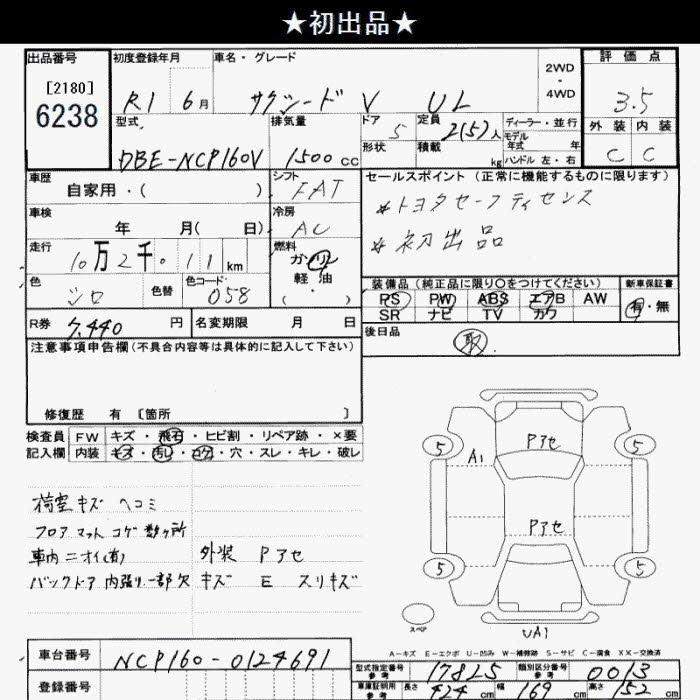 ★初出品★
出品番号 初度登録年月 車名・グレード 2WD ・ 4WD 評価点
[2180] 6238 R1 6月 サクシードV UL 3.5
型式 排気量 ドア 5 定員 2(5)人 ディーラー・並行 外装 内装
DBE-NCP160V 1500cc 形状 積載 kg モデル年式 年 ハンドル 左・右 C C
車歴 自家用・( ) シフト FAT セールスポイント(正常に機能するものに限ります)
車検 年 月( 日) 冷房 AC *トヨタセーフティセンス
走行 10万2千011km 燃料 ガソリン 軽油 ( ・ ) *初出品
色 シロ 色替 色コード 058 装備品(純正品に限り○をつけてください) 新車保証書
PS PW ABS エアB AW 有・無
R券 7,440円 名変期限 月 日 SR ナビ TV カワ
注意事項申告欄(不具合内容等は具体的に記入して下さい) 後日品 取
修復歴 有 〔箇所 〕
検査員 FW キズ・飛石・ヒビ割・リペア跡・×要
記入欄 内装 キズ・汚レ・コゲ・穴・スレ・キレ・破レ
荷室キズ ヘコミ
フロアマット コゲ数ヶ所
車内ニオイ(有) 外装 Pアセ
バックドア内張り一部欠 キズ E スリキズ
5 Pアセ 5
A1
Pアセ
5 5
スペア UA1
A-キズ E-エクボ U-凹み W-補修跡 S-サビ C-腐食 XX-交換済
車台番号 NCP160-0124691 型式指定番号 参考 17825 類別区分番号 参考 0013
登録番号 車庫証明用 参考 長さ 424cm 幅 169cm 高さ 152cm